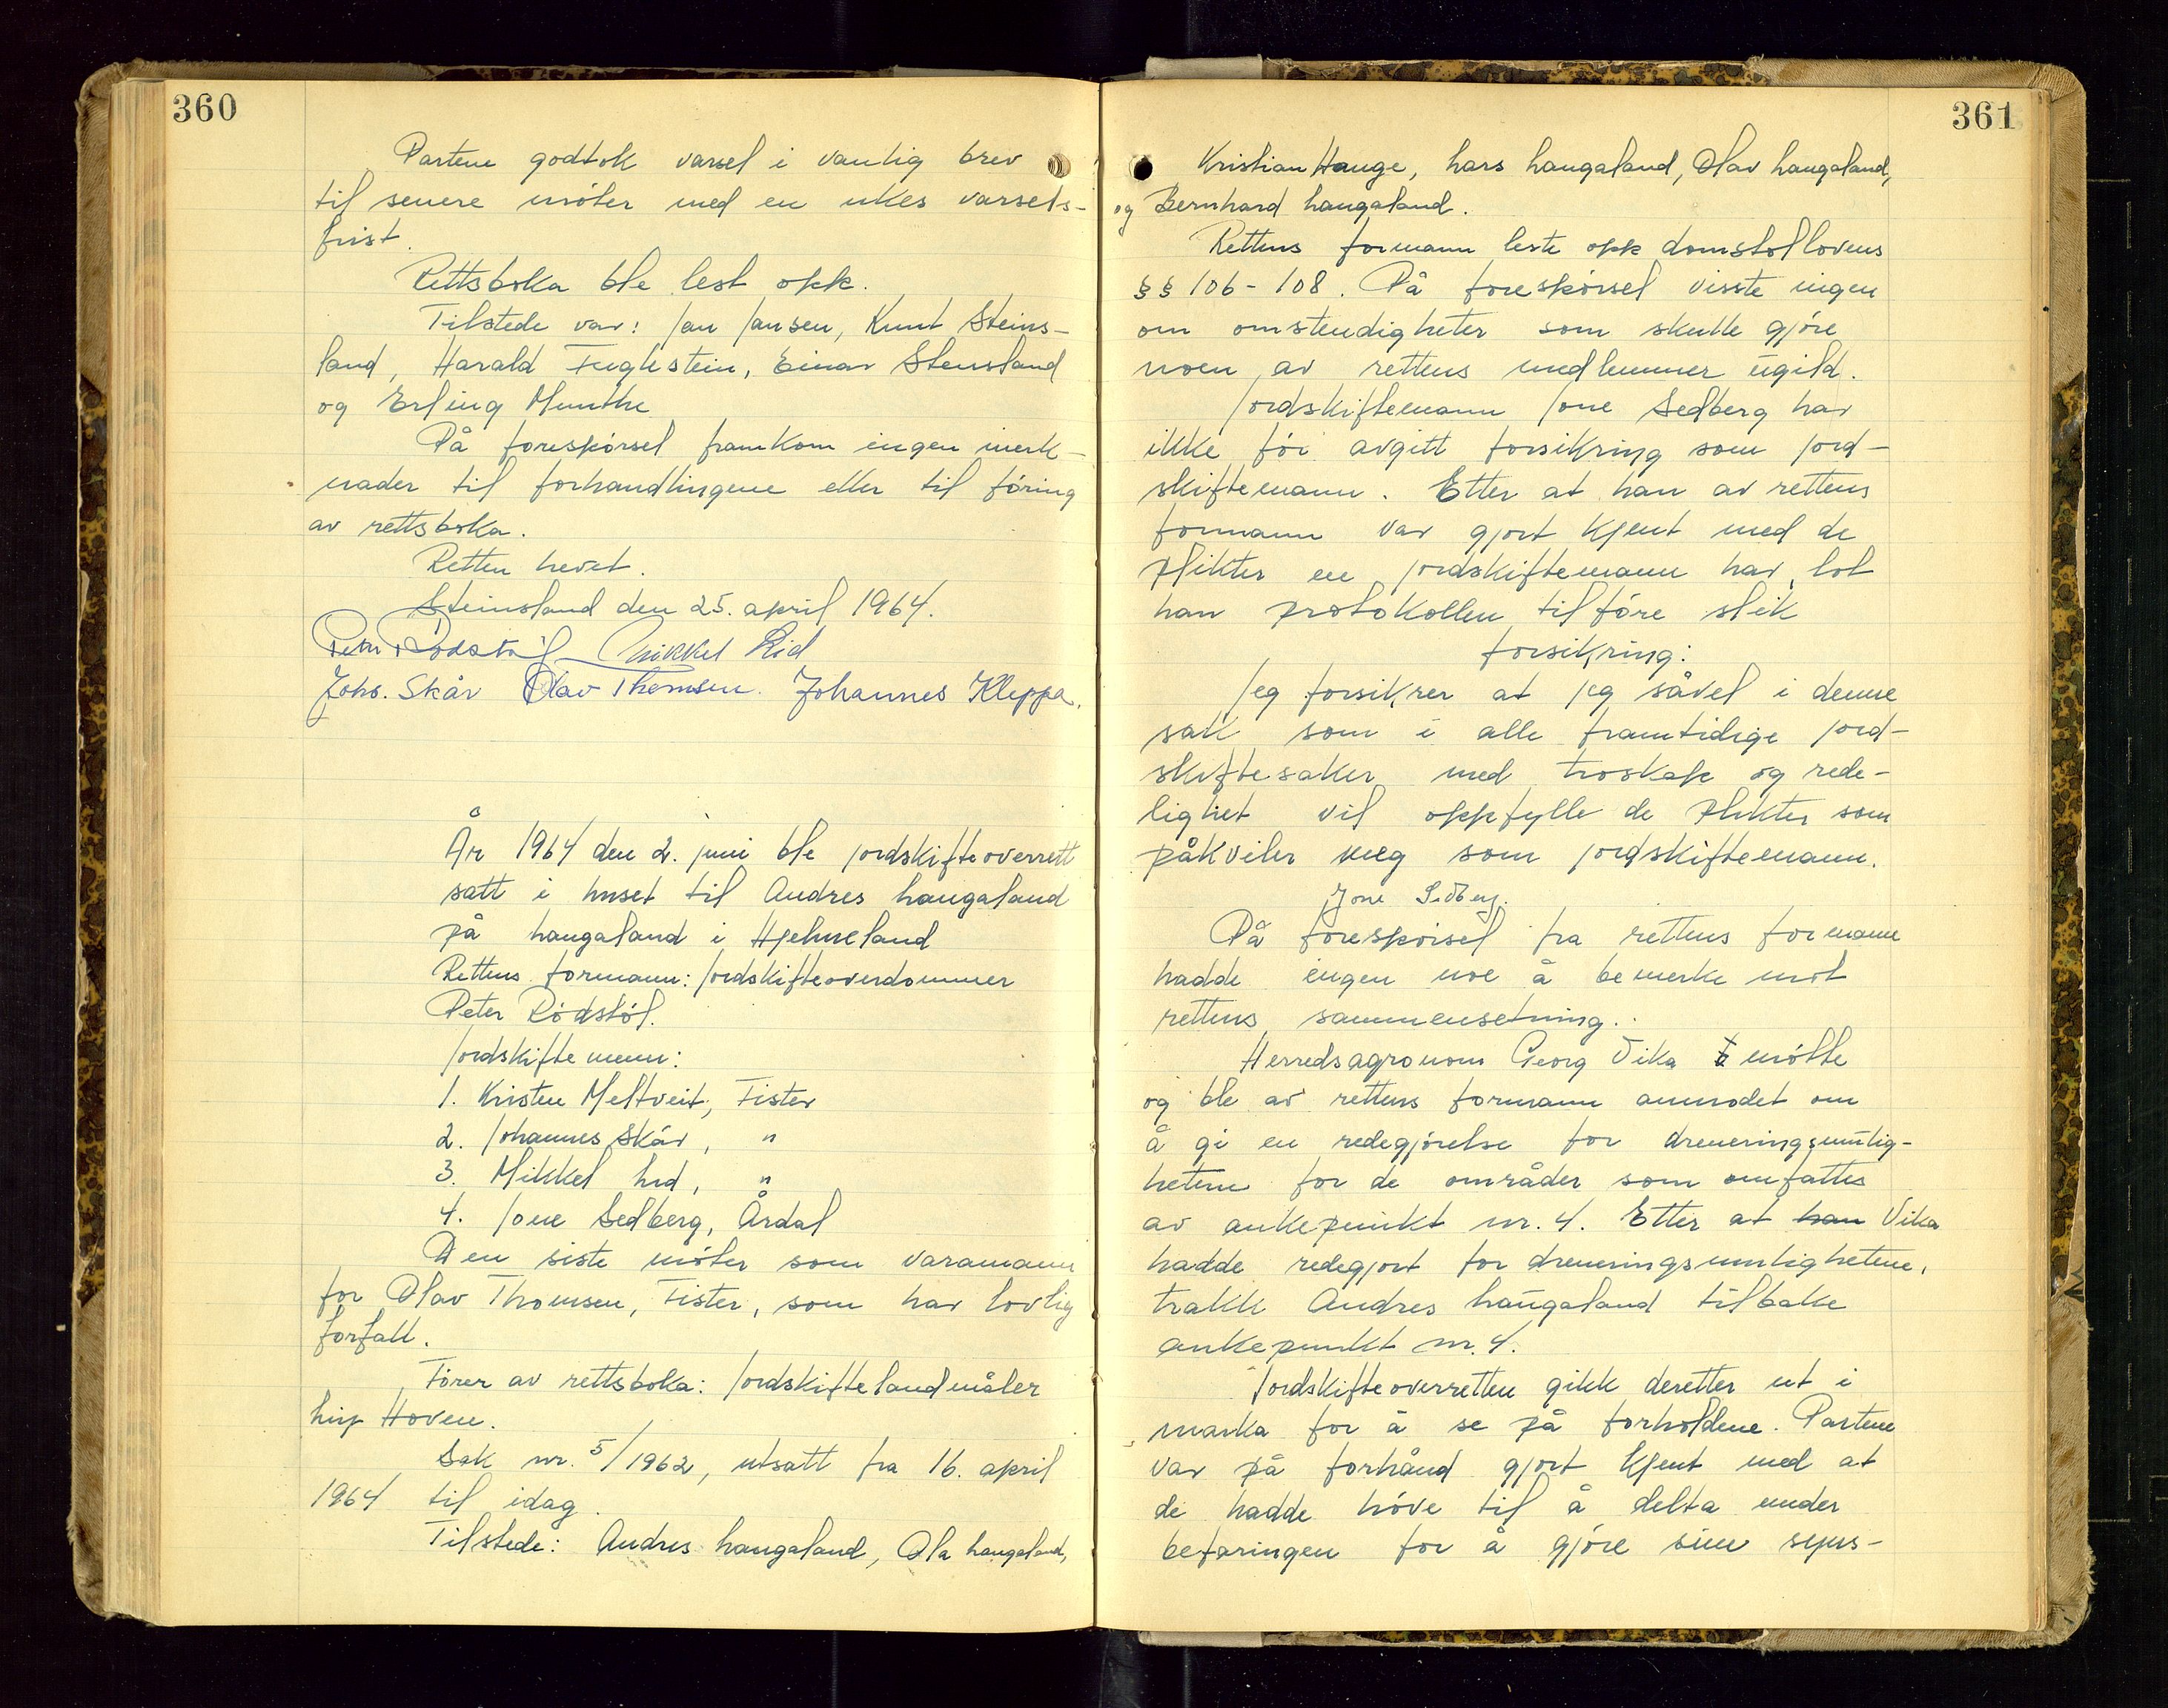 360
Partene godtok varsel i vanlig brev
til senere möter med en ukes varsels-
frist.
Rettsboka ble lest opp.
Tilstede var: Jan Jansen, Knut Steins-
land, Harald Fuglestein, Einar Stensland
og Erling Munthe
På forespörsel framkom ingen merk-
nader til forhandlingene eller tilföring
av rettsboka.
Retten hevet.
Steinsland den 25. april 1964.
Peter Rödstöl Mikkel Lid
Johs. Skår Olav Thomsen. Johannes Kleppa.
År 1964 den 2. juni ble jordskifteoverrett
satt i huset til Andres Laugaland
på Laugaland i Hjelmeland
Rettens formann: Jordskifteoverdommer
Peter Rödstöl.
Jordskiftemenn:
1. Kristen Meltveit, Fister
2. Johannes Skår, "
3. Mikkel Lid, "
4. Jone Sedberg, Årdal
Den siste möter som varamann
for Olav Thomsen, Fister, som har lovlig
forfall.
Förer av rettsboka: Jordskiftelandmåler
Hoven.
Sak nr. 5/1962, utsatt fra 16. april
1964 til idag.
Tilstede: Andres Laugaland, Ola Laugaland,
361
Kristian Hauge, Lars Laugaland, Olav Laugaland,
og Bernhard Laugaland.
Rettens formann leste opp domstollovens
§§ 106-108. På forespörsel visste ingen
om omstendigheter som skulle gjöre
noen av rettens medlemmer ugild.
Jordskiftemann Jone Sedberg har
ikke för avgitt forsikring som jord-
skiftemann. Etter at han av rettens
formann var gjort kjent med de
plikter en jordskiftemann har, lot
han protokollen tilföre slik
forsikring:
Jeg forsikrer at jeg såvel i denne
sak som i alle framtidige jord-
skiftesaker med troskap og rede-
lighet vil oppfylle de plikter som
påkviler meg som jordskiftemann.
Jone Sedberg.
På forespörsel fra rettens formann
hadde ingen noe å bemerke mot
rettens sammensetning.
Herredsagronom Georg Vika mötte
og ble av rettens formann anmodet om
å gi en redegjörelse for dreneringsmulig-
hetene for de områder som omfattes
av ankepunkt nr. 4. Etter at han Vika
hadde redegjort for dreneringsmulighetene,
trakk Andres Laugaland tilbake
ankepunkt nr. 4.
Jordskifteoverretten gikk deretter ut i
marka for å se på forholdene. Partene
var på forhånd gjort kjent med at
de hadde höve til å delta under
befaringen for å gjöre sine syns-